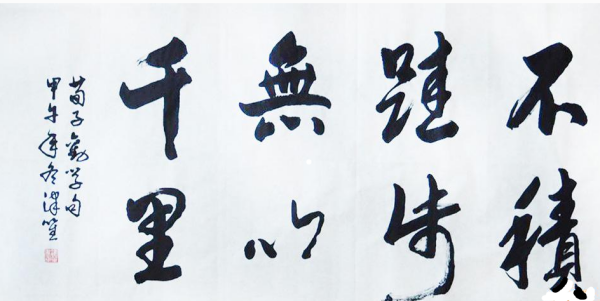 不積
跬步
無以
千里
荀子勸學句
甲午年冬